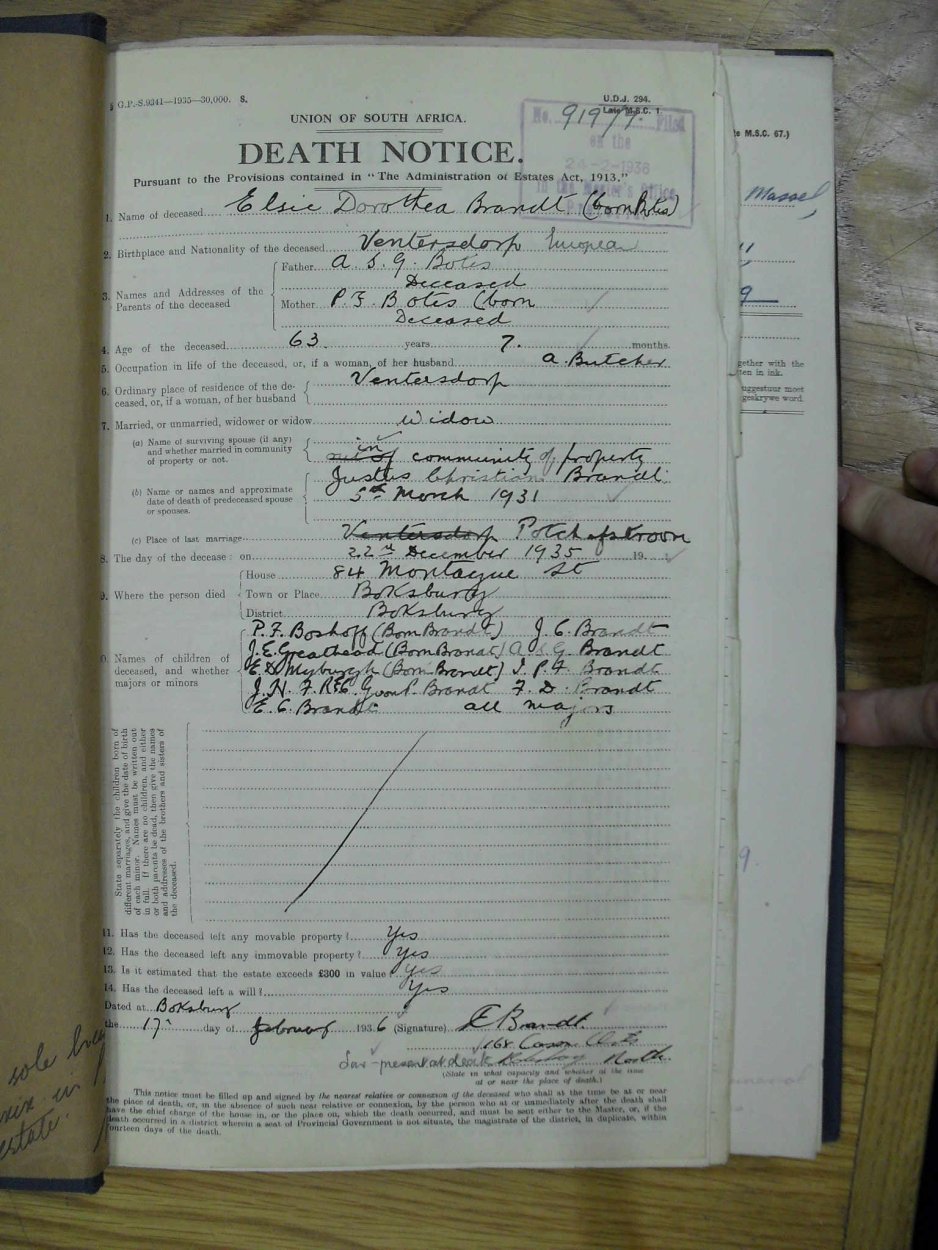 G.P.-S.9341—1935—30,000. S.
U.D.J. 294.
Late M.S.C. 1.
UNION OF SOUTH AFRICA.
No. 91977. Filed
on the
24-2-1936
in the Master's Office
DEATH NOTICE.
Pursuant to the Provisions contained in "The Administration of Estates Act, 1913."
1. Name of deceased Elsie Dorothea Brandt (born Botes)
2. Birthplace and Nationality of the deceased Ventersdorp European
3. Names and Addresses of the Parents of the deceased
Father A. S. G. Botes
Deceased
Mother P. F. Botes (born
Deceased
4. Age of the deceased 63 years 7. months.
5. Occupation in life of the deceased, or, if a woman, of her husband a Butcher
6. Ordinary place of residence of the de-
ceased, or, if a woman, of her husband
Ventersdorp
7. Married, or unmarried, widower or widow Widow
(a) Name of surviving spouse (if any)
and whether married in community
of property or not.
in
out of community of property
(b) Name or names and approximate
date of death of predeceased spouse
or spouses.
Justus Christiaan Brandt
5th March 1931
(c) Place of last marriage Ventersdorp Potchefstroom
8. The day of the decease: on 22nd December 1935 19
9. Where the person died
House 84 Montague St
Town or Place Boksburg
District Boksburg
Names of children of
deceased, and whether
majors or minors
P. F. Boshoff (Born Brandt) J. C. Brandt
J. E. Greathead (Born Brandt) A S G. Brandt
E. D. Myburgh (Born Brandt) J. P. F. Brandt
J. H. F. Brandt F. D. Brandt
E. C. Brandt all majors
State separately the children born of
different marriages, and give the date of birth
of each minor. Names must be written out
in full. If there are no children, and either
or both parents be dead, then give the names
and addresses of the brothers and sisters of
the deceased.
11. Has the deceased left any movable property? Yes
12. Has the deceased left any immovable property? Yes
13. Is it estimated that the estate exceeds £300 in value? Yes
14. Has the deceased left a will? Yes
Dated at Boksburg
the 17th day of February 1936 (Signature) E Brandt.
168 Cason
Son - present at death North.
(State in what capacity and whether at the time
at or near the place of death.)
This notice must be filled up and signed by the nearest relative or connexion of the deceased who shall at the time be at or near
the place of death, or, in the absence of such near relative or connexion, by the person who at or immediately after the death shall
have the chief charge of the house in, or the place on, which the death occurred, and must be sent either to the Master, or, if the
death occurred in a district wherein a seat of Provincial Government is not situate, the magistrate of the district, in duplicate, within
fourteen days of the death.
M.S.C. 67.)
gether with the
ten in ink.
uggestuur moet
geskrywe word.
sole
in
estate.